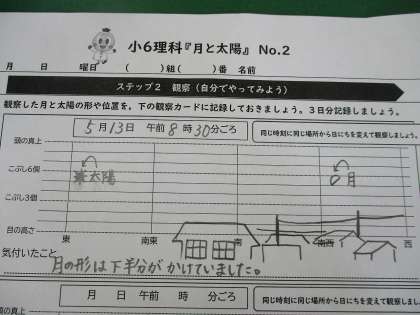 小6理科『月と太陽』 No.2
月 日 曜日 ( )組( )番 名前
ステップ2 観察（自分でやってみよう）
観察した月と太陽の形や位置を、下の観察カードに記録しておきましょう。3日分記録しましょう。
5月13日 午前8時30分ごろ
同じ時刻に同じ場所から日にちを変えて観察しましょう。
頭の真上
こぶし6個
太陽
月
こぶし3個
目の高さ
東 南東 南 南西 西
気付いたこと
月の形は下半分がかけていました。
月 日 午前 時 分ごろ
同じ時刻に同じ場所から日にちを変えて観察しましょう。
頭の真上